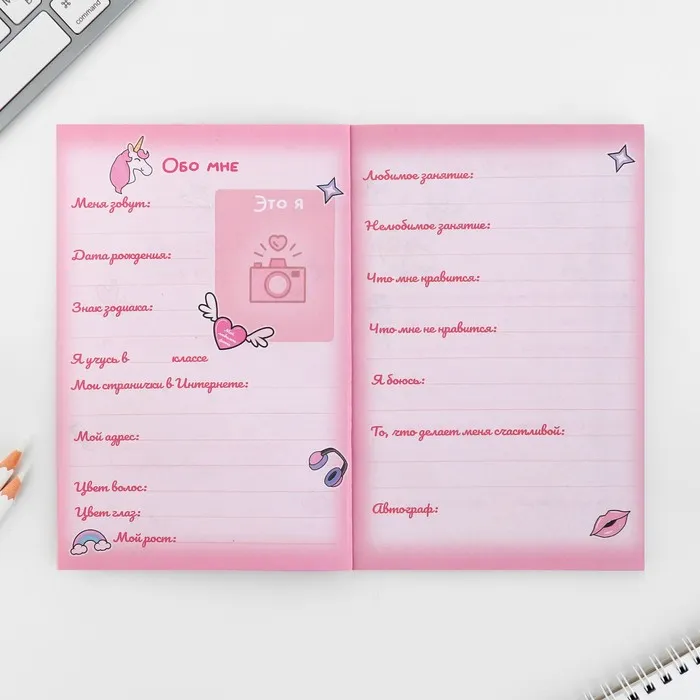 command
Обо мне
Это я
Меня зовут:
Дата рождения:
Знак зодиака:
Я учусь в классе
Мои странички в Интернете:
Мой адрес:
Цвет волос:
Цвет глаз:
Мой рост:
Любимое занятие:
Нелюбимое занятие:
Что мне нравится:
Что мне не нравится:
Я боюсь:
То, что делает меня счастливой:
Автограф: